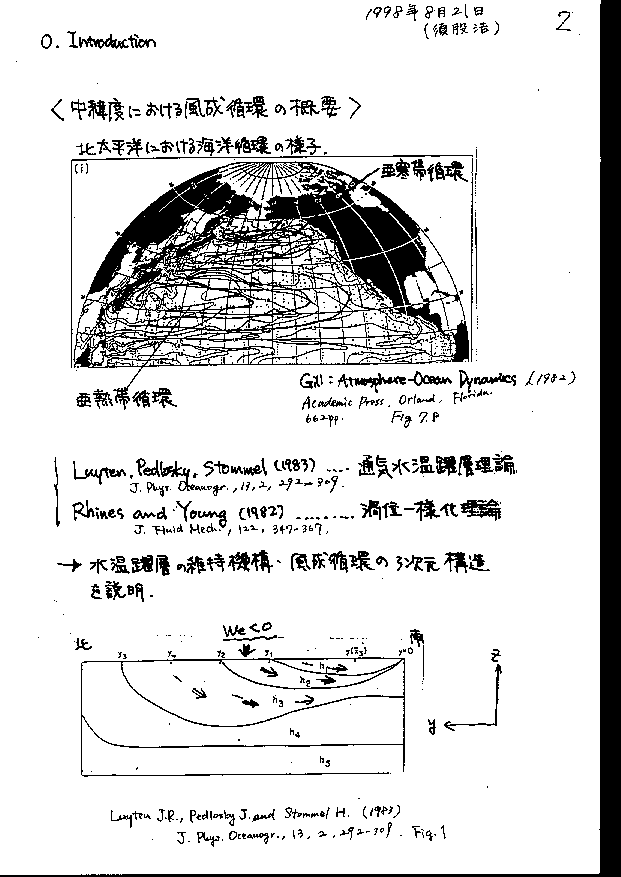 1998年8月21日
(須股浩)
2
0. Introduction
〈中緯度における風成循環の概要〉
北太平洋における海洋循環の様子.
(i)
亜寒帯循環
亜熱帯循環
Gill: Atmosphere-Ocean Dynamics (1982)
Academic Press, Orland, Florida.
662pp. Fig 7.8
Luyten, Pedlosky, Stommel (1983) .... 通気水温躍層理論
J. Phys. Oceanogr., 13, 2, 292-309.
Rhines and Young (1982) ......... 渦位一様化理論
J. Fluid Mech., 122, 347-367.
→ 水温躍層の維持機構、風成循環の3次元構造
を説明.
We<0
北 南
y3 y2 y1 y=0
h1
h2
h3
h4
h5
z
y
Luyten J.R., Pedlosky J. and Stommel H. (1983)
J. Phys. Oceanogr., 13, 2, 292-309. Fig.1